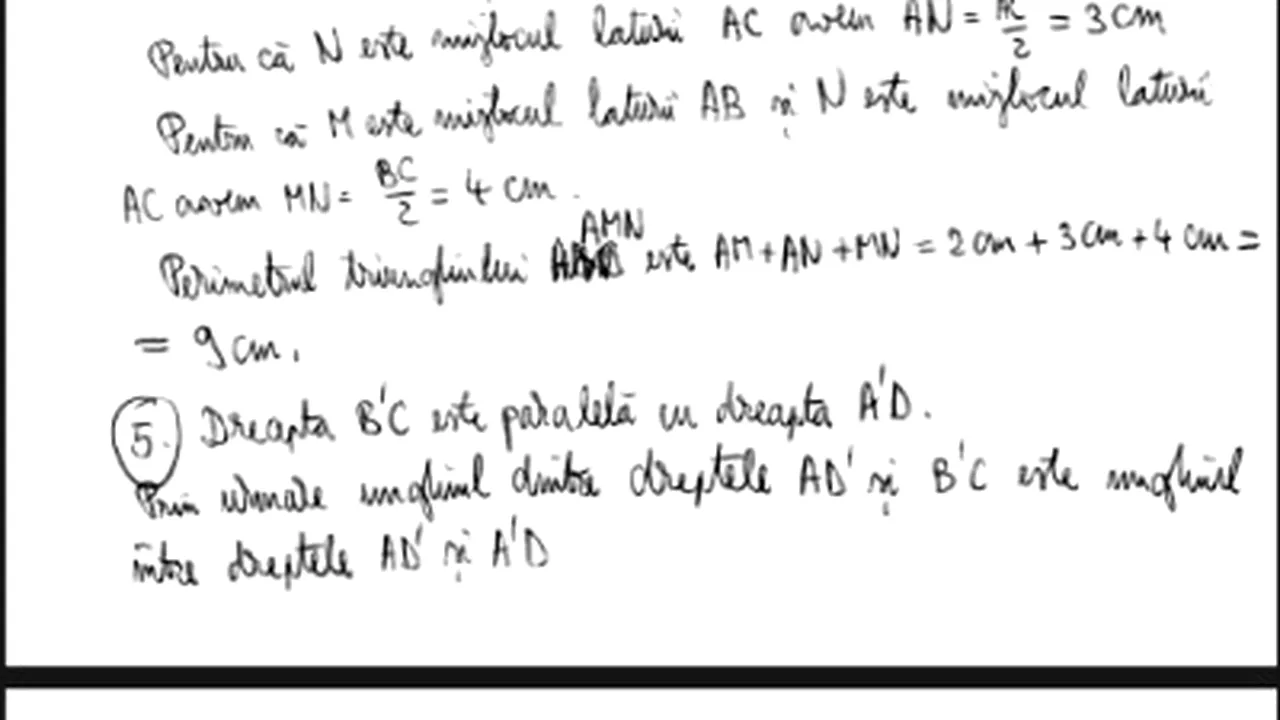 Pentru că N este mijlocul laturii AC avem AN = AC/2 = 3 cm
Pentru că M este mijlocul laturii AB și N este mijlocul laturii
AC avem MN = BC/2 = 4 cm.
Perimetrul triunghiului AMN este AM + AN + MN = 2 cm + 3 cm + 4 cm =
= 9 cm.
5. Dreapta B'C este paralelă cu dreapta A'D.
Prin urmare unghiul dintre dreptele AD' și B'C este unghiul
între dreptele AD' și A'D